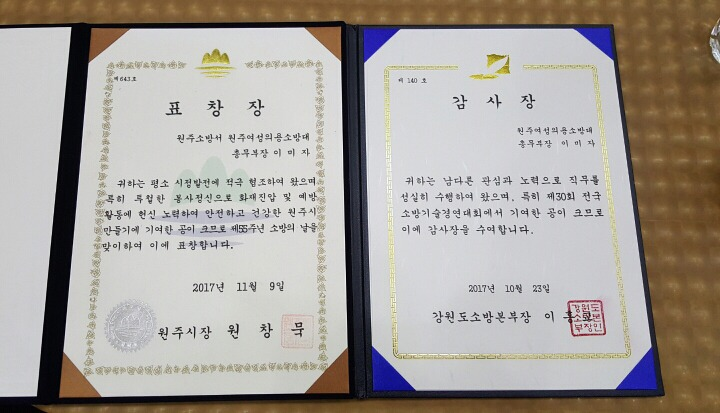 제643호
표 창 장
원주소방서 원주여성의용소방대
총무부장 이 미 자
귀하는 평소 시정발전에 적극 협조하여 왔으며
특히 특철한 봉사정신으로 화재진압 및 예방
활동에 헌신 노력하여 안전하고 건강한 원주시
만들기에 기여한 공이 크므로 제55주년 소방의 날을
맞이하여 이에 표창합니다.
2017년 11월 9일
원주시장 원 창 묵
제 140 호
감 사 장
원주여성의용소방대
총무부장 이 미 자
귀하는 남다른 관심과 노력으로 직무를
성실히 수행하여 왔으며, 특히 제30회 전국
소방기술경연대회에서 기여한 공이 크므로
이에 감사장을 수여합니다.
2017년 10월 23일
강원도소방본부장 이 흥
강원도
소방본
부장인